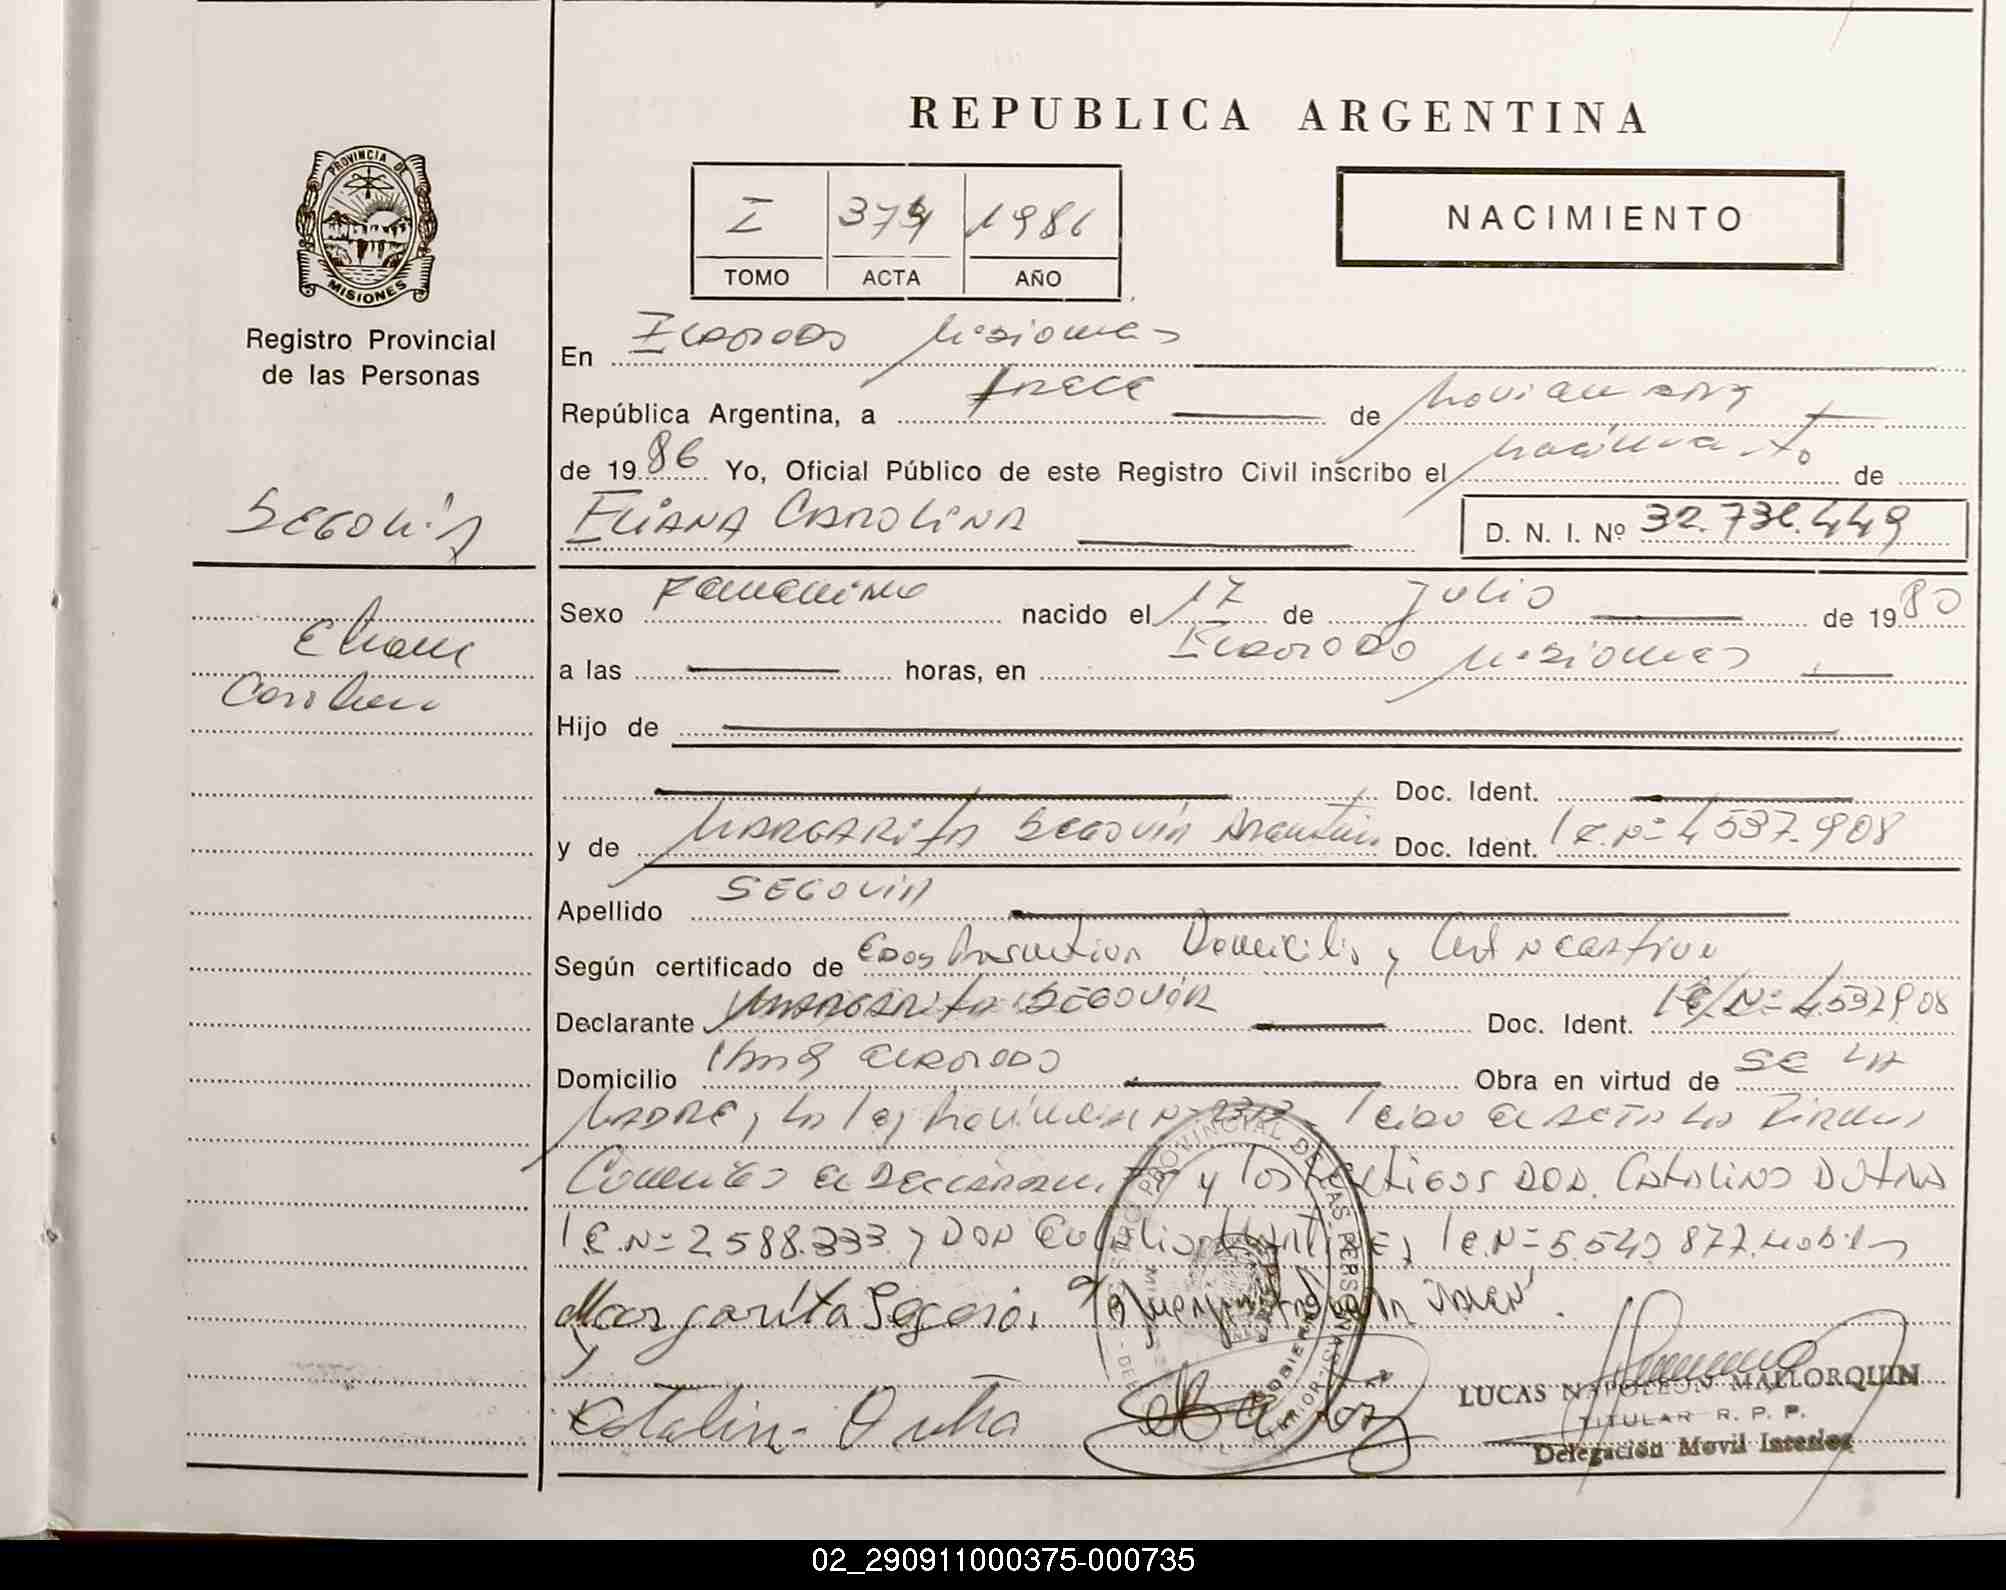 REPUBLICA ARGENTINA
PROVINCIA DE
MISIONES
Registro Provincial
de las Personas
I 1986
TOMO ACTA AÑO
NACIMIENTO
En Eldorado Misiones
República Argentina, a trece de noviembre
de 1986 Yo, Oficial Público de este Registro Civil inscribo el nacimiento de
SEGOVIA
ELIANA CAROLINA
D. N. I. Nº 32.736.449
Eliana
Carolina
Sexo Femenino nacido el 17 de Julio de 1980
a las horas, en Eldorado Misiones
Hijo de
Doc. Ident.
y de MARGARITA SEGOVIA Argentina Doc. Ident. I C.Nº 4537.908
Apellido SEGOVIA
Según certificado de Domicilio y
Declarante MARGARITA SEGOVIA Doc. Ident. Nº 4.537.908
Domicilio Eldorado Obra en virtud de SE LA
MADRE, La ley Nº Leido el acta la firman
el declarante y los testigos DON. CATALINO DUTRA
I C.Nº 2.588.333 y DON I C.Nº 5.549 877.
Margarita Segovia
LUCAS NAPOLEON MALLORQUIN
TITULAR R. P. P.
Delegación Movil Interior
02_290911000375-000735